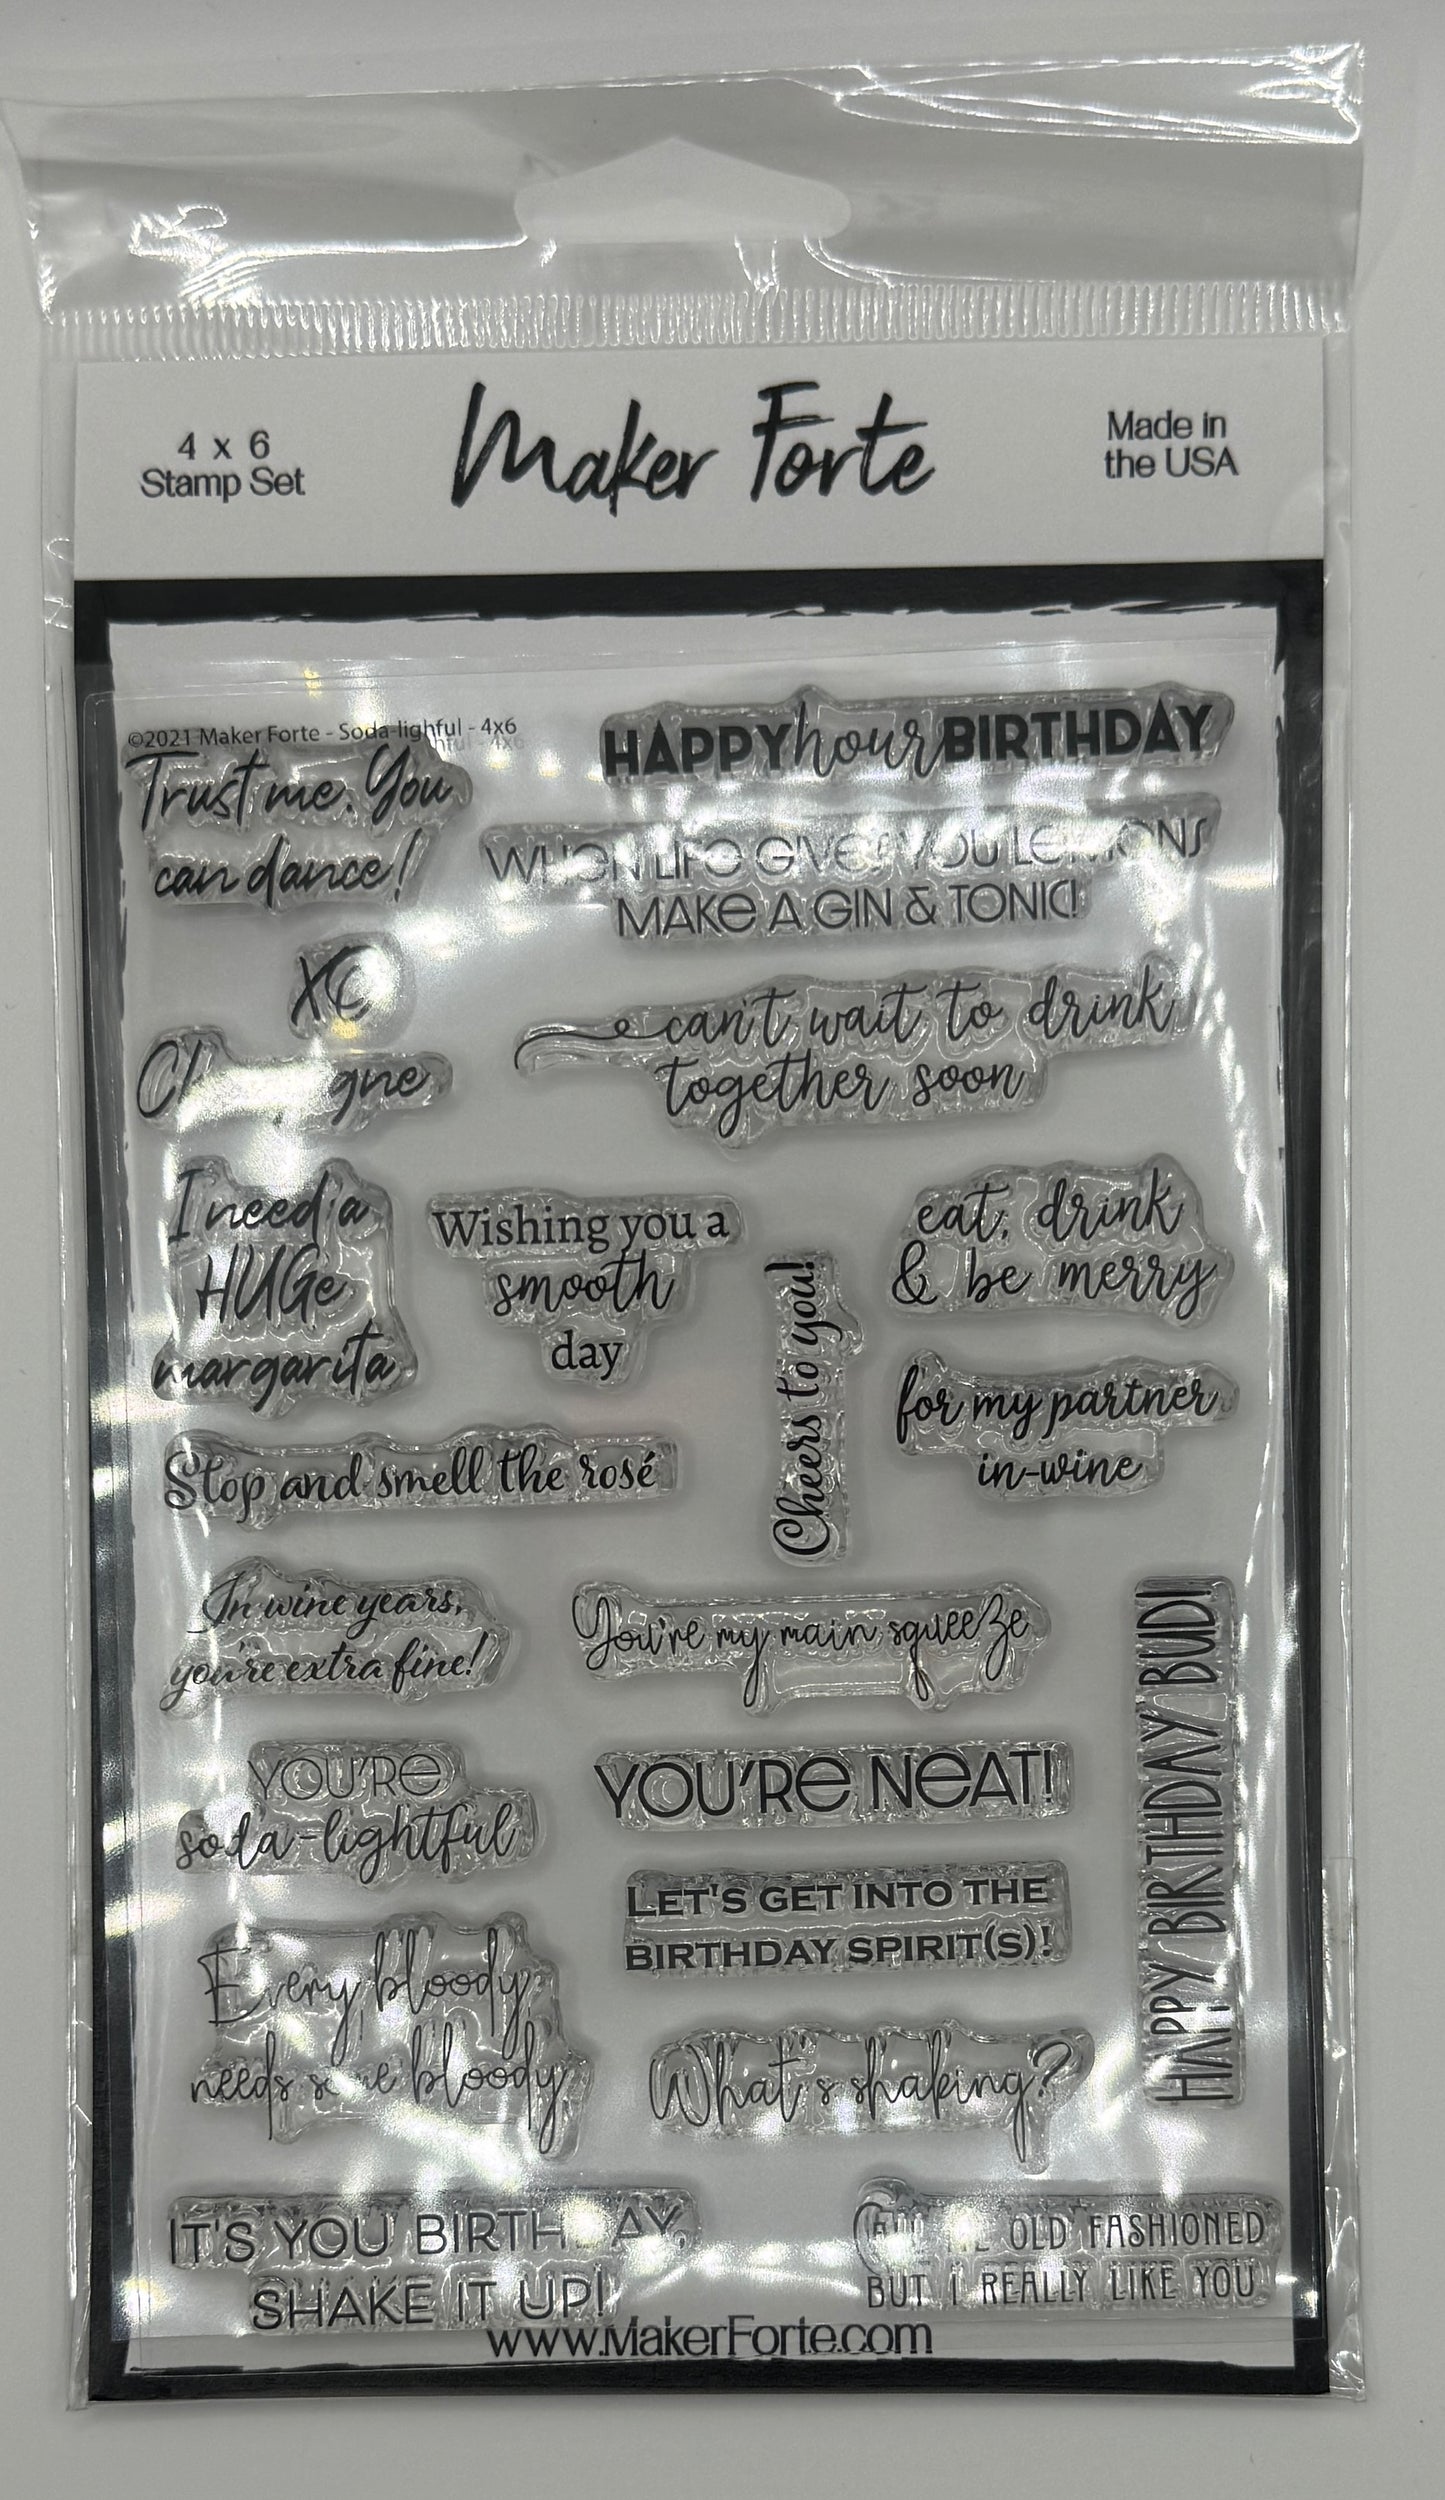 4 x 6
Stamp Set
Maker Forte
Made in
the USA
©2021 Maker Forte - Soda-lighful - 4x6
Trust me. You
can dance!
HAPPY hour BIRTHDAY
WHEN LIFE GIVES YOU LEMONS
MAKE A GIN & TONIC!
can't wait to drink
together soon
I need a
HUGE
margarita
Wishing you a
smooth
day
Cheers to you!
eat, drink
& be merry
for my partner
in-wine
Stop and smell the rosé
In wine years,
you're extra fine!
You're my main squeeze
HAPPY BIRTHDAY BUD!
YOU'RE
soda-lightful
YOU'RE NEAT!
LET'S GET INTO THE
BIRTHDAY SPIRIT(S)!
Every bloody
needs some bloody
What's shaking?
IT'S YOU BIRTHDAY,
SHAKE IT UP!
OLD FASHIONED
BUT I REALLY LIKE YOU
www.MakerForte.com